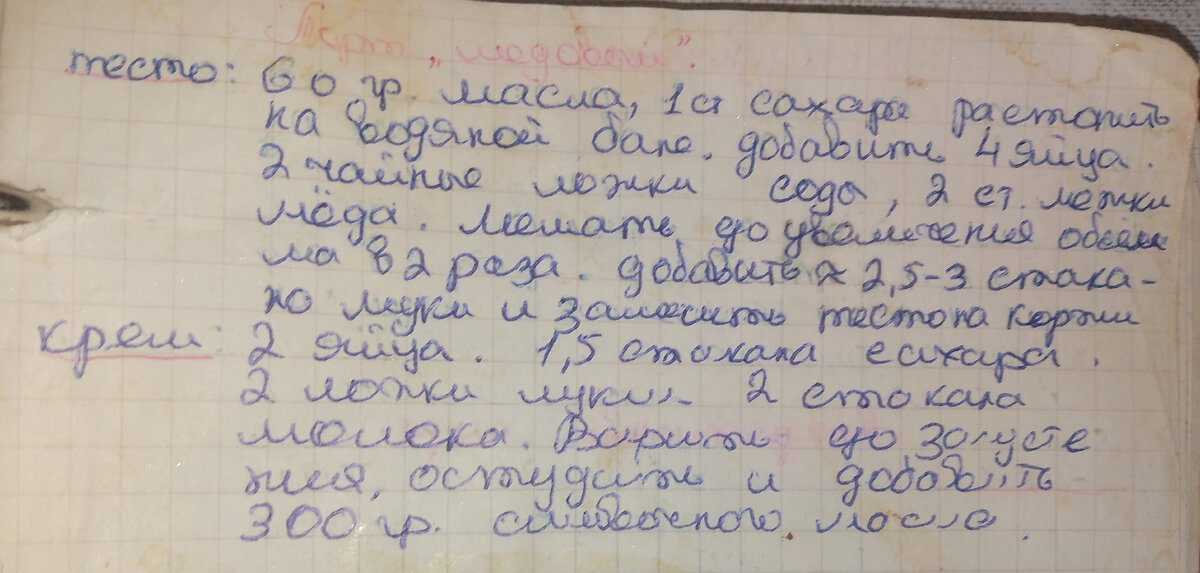 Торт „медовый".
тесто: 60 гр. масла, 1 ст сахара растопить
на водяной бане. добавить 4 яйца.
2 чайные ложки соды, 2 ст. ложки
мёда. Мешать до увеличения объем
ма в 2 раза. добавить ≈ 2,5-3 стака-
но муки и замесить тесто на коржи
крем: 2 яйца. 1,5 стакана сахара.
2 ложки муки. 2 стакана
молока. Варить до загусте
ния, остудить и добавить
300 гр. сливочного масла.